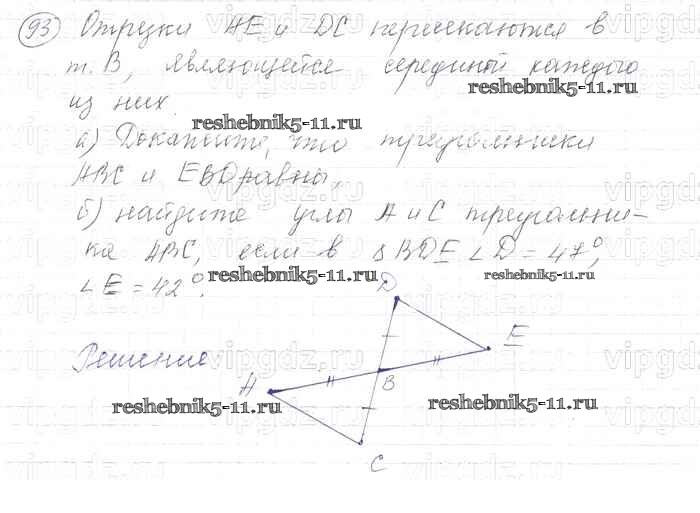 93 Отрезки AE и DC пересекаются в
т. B, являющейся серединой каждого
из них.
а) Докажите, что треугольники
ABC и EBD равны,
б) найдите углы A и C треугольни-
ка ABC, если в ΔBDE ∠D = 47°,
∠E = 42°.
Решение
D
E
A
B
C
reshebnik5-11.ru
reshebnik5-11.ru
reshebnik5-11.ru
reshebnik5-11.ru
reshebnik5-11.ru
reshebnik5-11.ru
vipgdz.ru